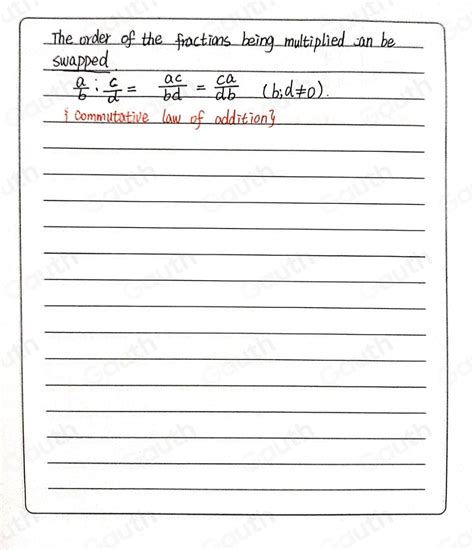 The order of the fractions being multiplied can be
swapped.
a/b : c/d = ac/bd = ca/db (b;d≠0).
{ commutative law of addition}
Gauth